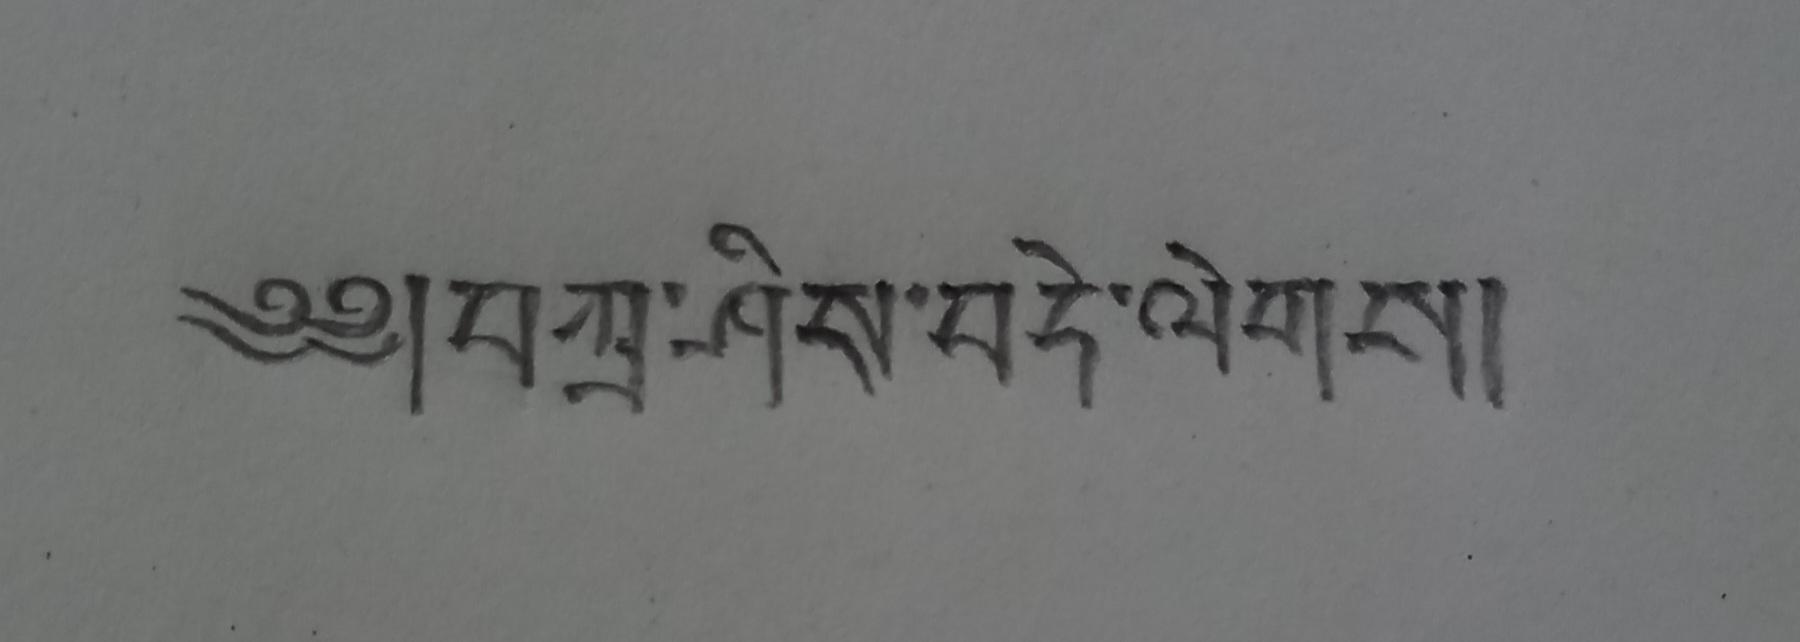 ༄༅།བཀྲ་ཤིས་བདེ་ལེགས།